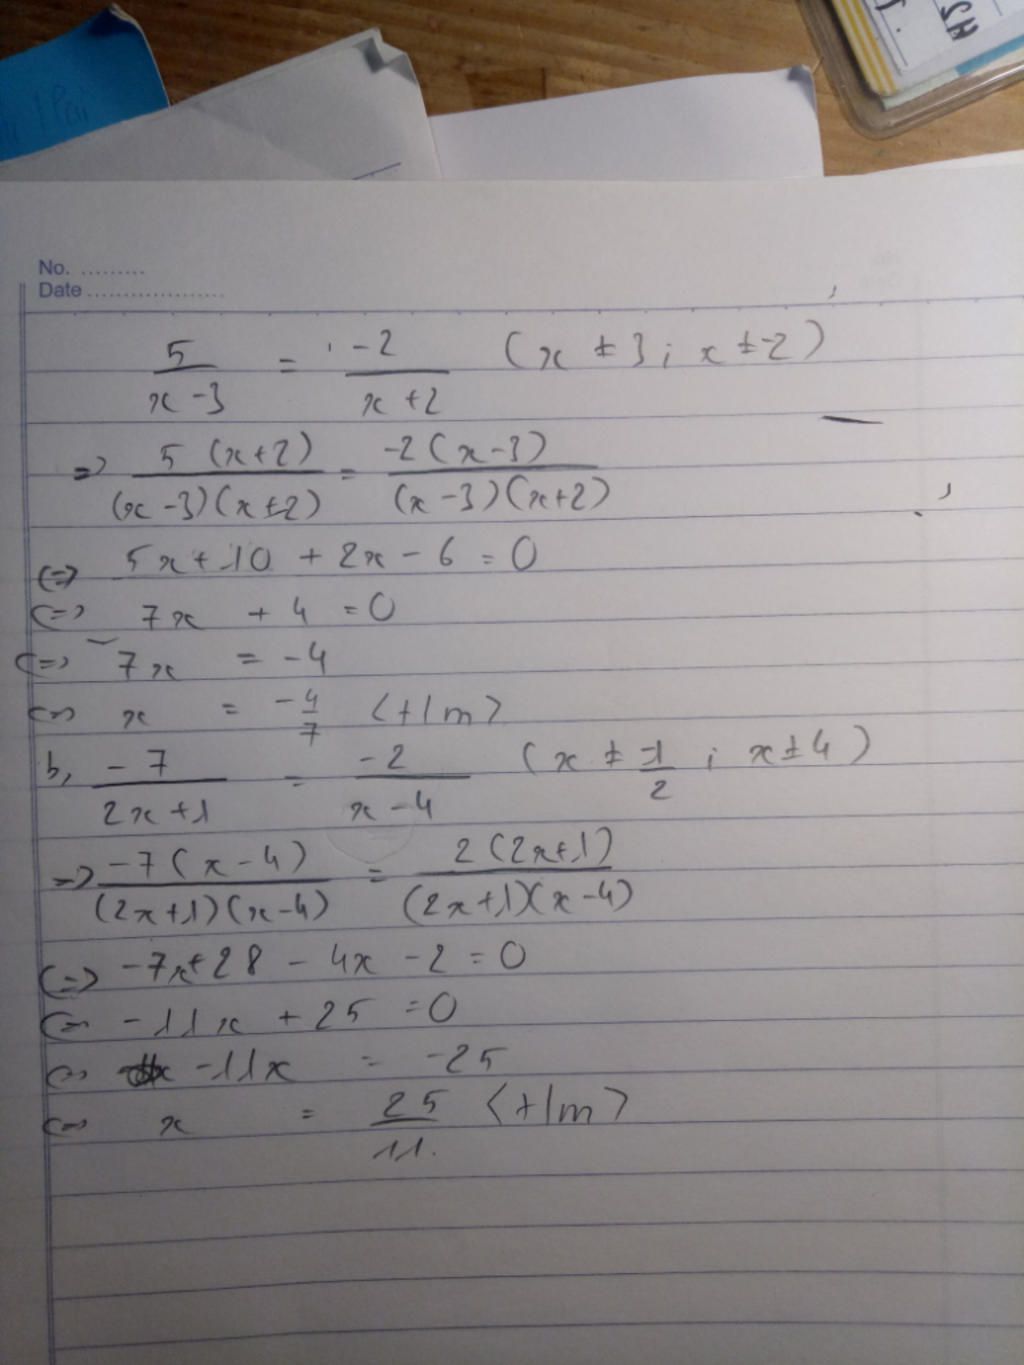 No. .........
Date ...................
5/(x-3) = -2/(x+2) (x ≠ 3; x ≠ -2)
=> 5(x+2)/((x-3)(x+2)) = -2(x-3)/((x-3)(x+2))
<=> 5x+10 + 2x - 6 = 0
<=> 7x + 4 = 0
<=> 7x = -4
<=> x = -4/7 (t/m)
b, -7/(2x+1) = -2/(x-4) (x ≠ -1/2 ; x ≠ 4)
=> -7(x-4)/((2x+1)(x-4)) = 2(2x+1)/((2x+1)(x-4))
<=> -7x+28 - 4x - 2 = 0
<=> -11x + 25 = 0
<=> -11x = -25
<=> x = 25/11 (t/m)